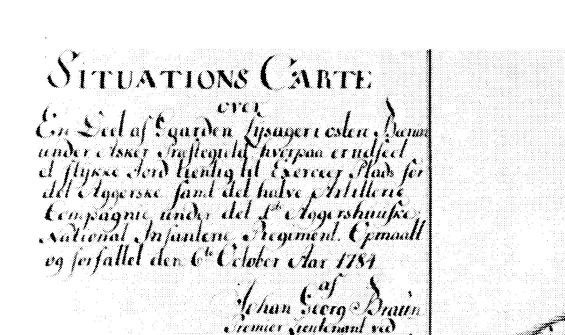 SITUATIONS CARTE
over
En Deel af Gaarden Lysager i osten Bærum
under Asker Præstegield hverpaa er udseet
et stykke Jord tienlig til Exercer Plads for
det Aggerske samt det halve Artillerie
Compagnie under det 1te Aggershuusiske
National Infanterie Regiment. Opmaalt
og forfattet den 6te October Aar 1784.
af
Johan Georg Braün
Premier Lieutenant ved